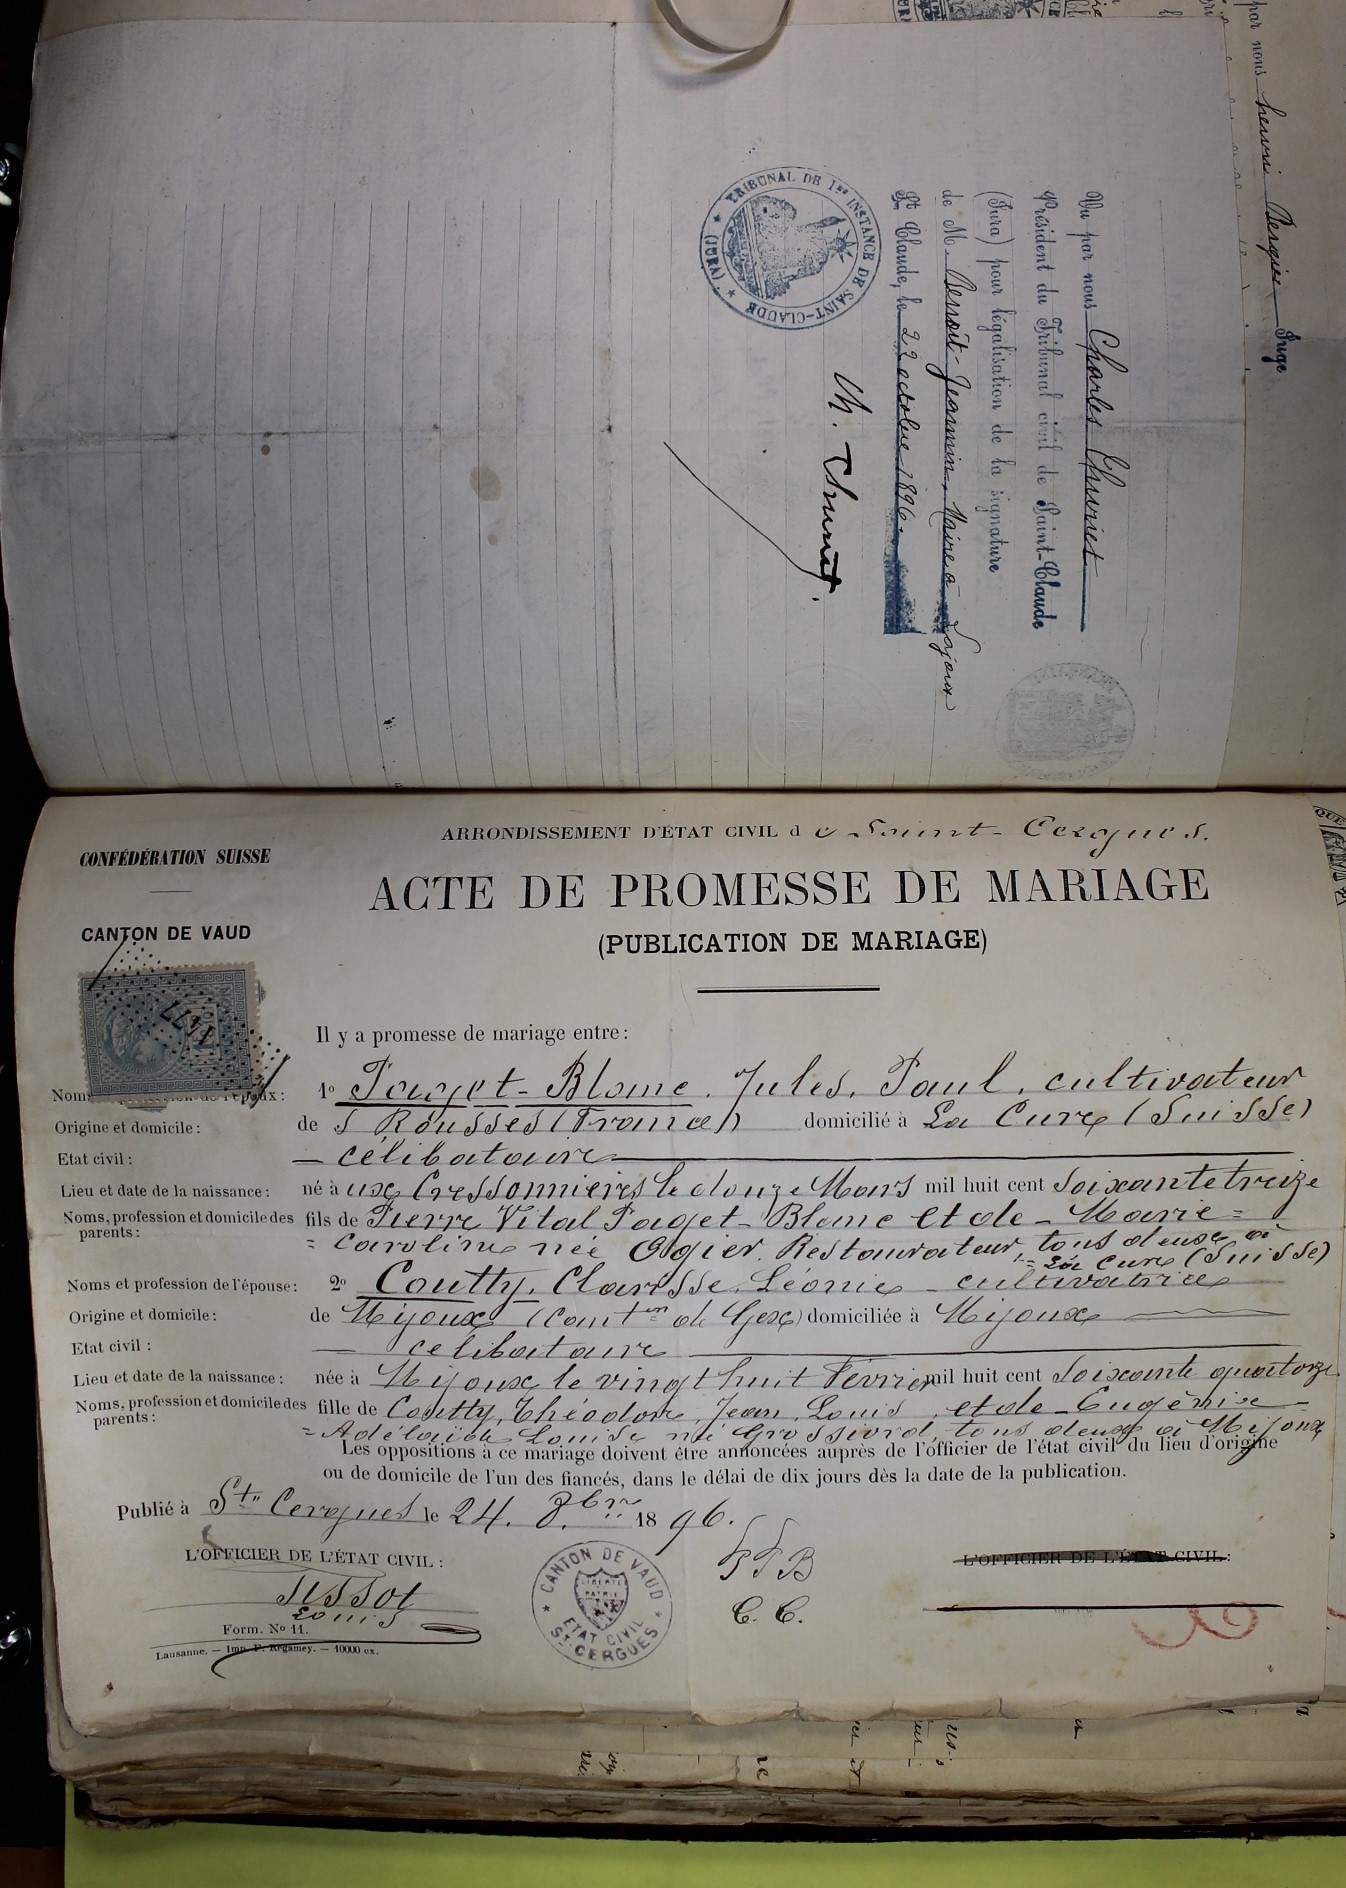 par nous henri Bergier Juge
Vu par nous Charles Thuriet
Président du Tribunal civil de Saint-Claude
(Jura) pour légalisation de la signature
de M. Benoit-Jeannin, Maire à Lajoux
St Claude, le 22 octobre 1896.
TRIBUNAL DE 1re INSTANCE DE SAINT-CLAUDE
★ (JURA) ★
Ch. Thuriet.
ARRONDISSEMENT D'ÉTAT CIVIL de Saint-Cergues.
CONFÉDÉRATION SUISSE
ACTE DE PROMESSE DE MARIAGE
CANTON DE VAUD
(PUBLICATION DE MARIAGE)
1477
Il y a promesse de mariage entre:
Noms époux: 1º Paget-Blanc, Jules, Paul, cultivateur
Origine et domicile: de s Rousses (France) domicilié à La Cure (Suisse)
Etat civil: célibataire
Lieu et date de la naissance: né à ux Cressonnières le douze Mars mil huit cent soixante treize
Noms, profession et domicile des parents: fils de Pierre Vital Paget-Blanc et de Marie=
= Caroline née Ogier, Restaurateur, tous deux à
= La Cure (Suisse)
Noms et profession de l'épouse: 2º Coutty, Clarisse, Léonie cultivatrice
Origine et domicile: de Mijoux (Cant on de Gex) domiciliée à Mijoux
Etat civil: célibataire
Lieu et date de la naissance: née à Mijoux le vingt huit Février mil huit cent soixante quatorze
Noms, profession et domicile des parents: fille de Coutty, Théodore, Jean, Louis, et de Eugénie=
= Adélaïde Louise née Grossiord, tous deux à Mijoux
Les oppositions à ce mariage doivent être annoncées auprès de l'officier de l'état civil du lieu d'origine
ou de domicile de l'un des fiancés, dans le délai de dix jours dès la date de la publication.
Publié à St. Cergues le 24. 8bre 1896.
L'OFFICIER DE L'ÉTAT CIVIL:
L'OFFICIER DE L'ÉTAT CIVIL:
CANTON DE VAUD
LIBERTÉ
PATRIE
ETAT CIVIL
ST CERGUES
P P B
C. C.
Louis
Form. Nº 11.
Lausanne. — Imp. F. Regamey. — 10000 ex.